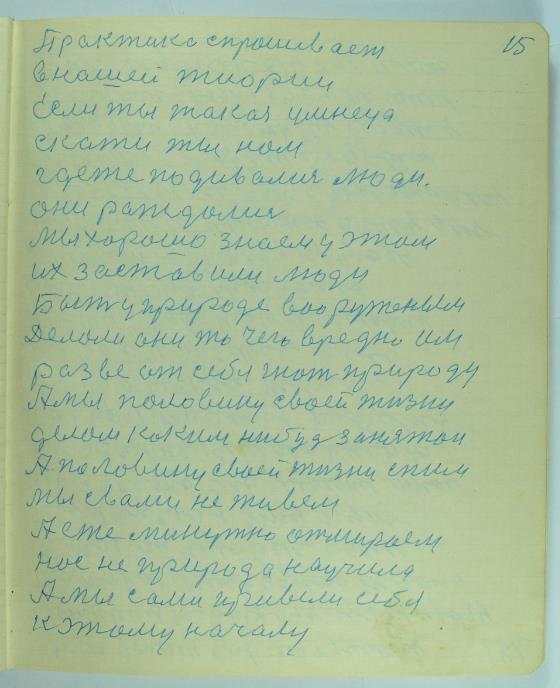 15
Практика спрашивает
в нашей тиории
Если ты такая умнеца
скати ты нам
где же подивалися люди.
они раждалися
мы хорошо знаем у этом
их заставили люди
Быть у природе вооруженым
Делали они то чего вредно им
разве от себя гнат природу
А мы половину своей жизни
делом каким нибуд занятаи
А половину своей жизни спим
мы свами не живем
А сже минутно отмираем
нас не природа научила
А мы сами привели себя
к этому началу